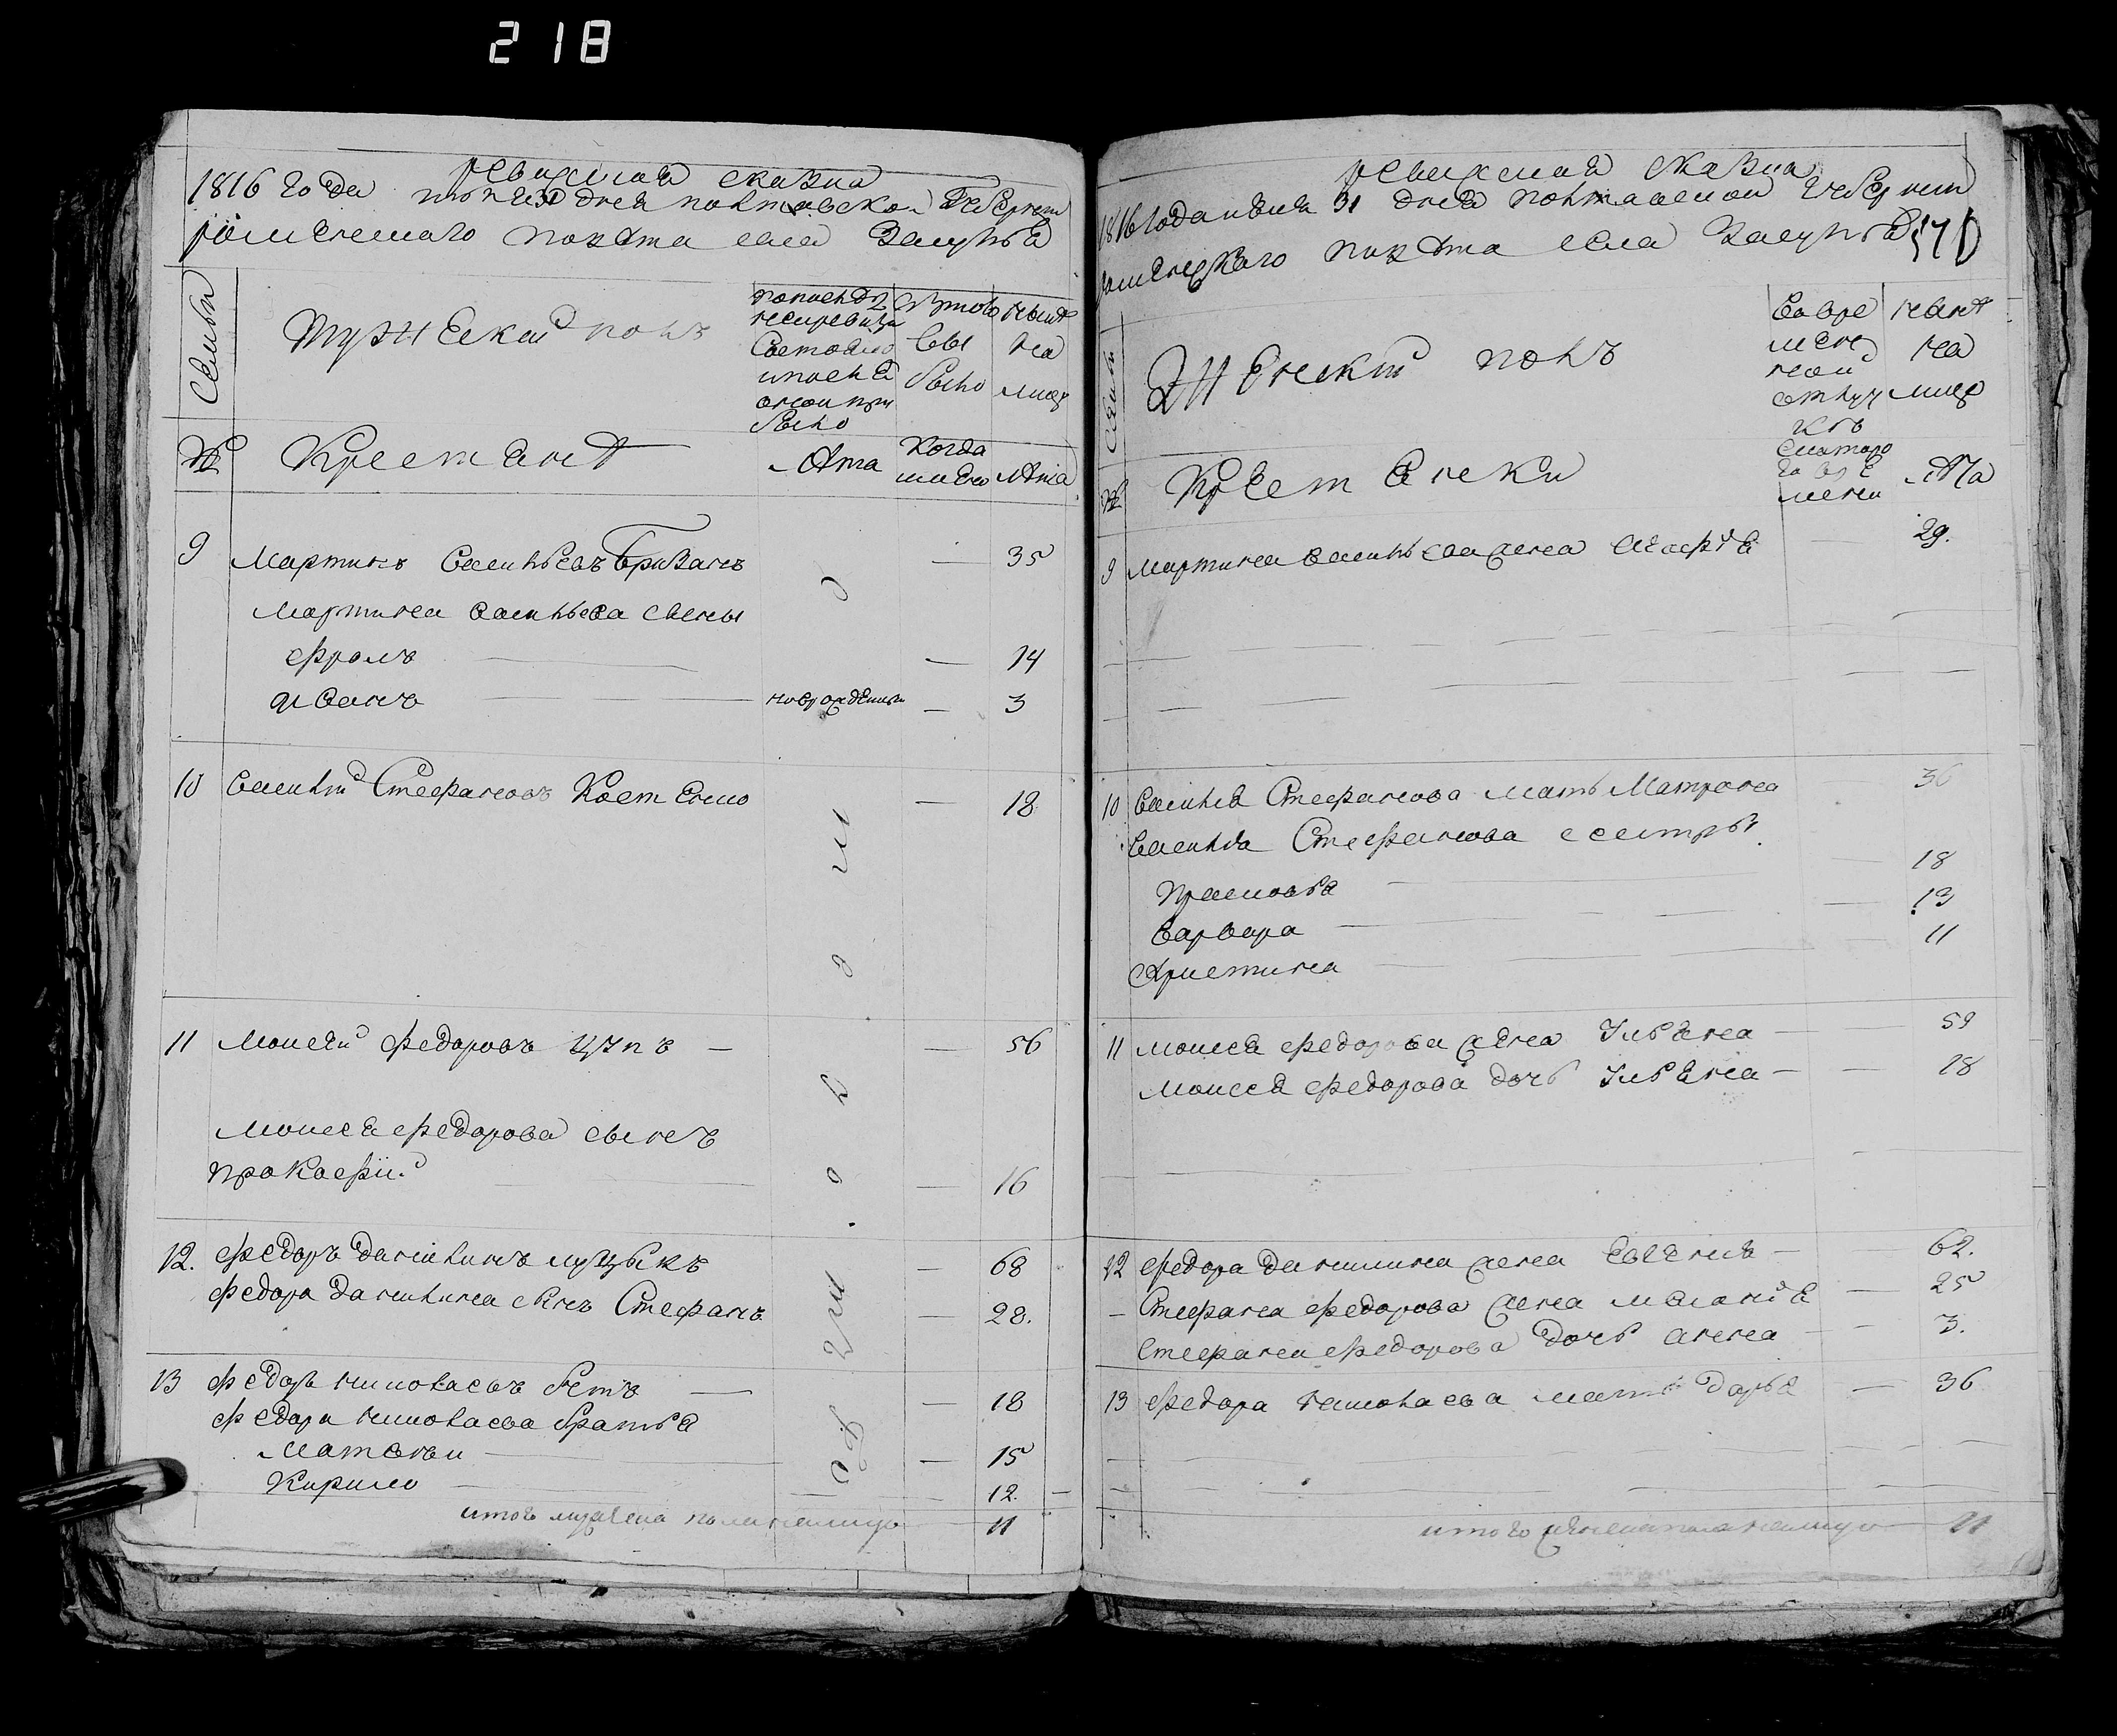 218
ревижская сказка
1816 года июля 31 дня полтавской губернии
роменского повѣта села Засулья
Семьи
Мужеской полъ
по последней ревизии состояло и после оной прибыло
Изъ того выбыло
Нынѣ на лицо
№
Крестьянѣ
Лѣта
Когда именно
Лѣта
9 Мартинъ Васильевъ Бриванъ — 35
Мартина Васильева сыны
Фролъ — 14
Иванъ новорожденный — 3
10 Василий Стефановъ Костенко — 18
11 Моисей Федоровъ Цупъ — 56
Моисея Федорова сынъ
Прокофий — 16
12. Федоръ Данилинъ Муцыкъ — 68
Федора Данилина сынъ Стефанъ — 28.
13 Федоръ Николаевъ — 18
Федора Николаева братья
Матвѣи — 15
Кирило — 12.
итого мужеска пола налицо 11
ревижская сказка
1816 года июля 31 дня полтавской губернии
роменского повѣта села Засулья
Семьи
Женский полъ
Во временной отлучке
Нынѣ на лицо
№
Крестьянки
Съ которого времени
Лѣта
9 Мартина Васильева жена Агафия — 29.
10 Василия Стефанова мать Матрона 36
Василия Стефанова сестры
Прасковья — 18
Варвара — 13
Христина — 11
11 Моисея Федорова жена Ульяна — 59
Моисея Федорова дочь Ульяна — 18
12 Федора Данилина жена Евгения — 62.
Стефана Федорова жена Мелания — 25
Стефана Федорова дочь Анна — 3.
13 Федора Николаева мать Дарья — 36
итого женска пола налицо 11